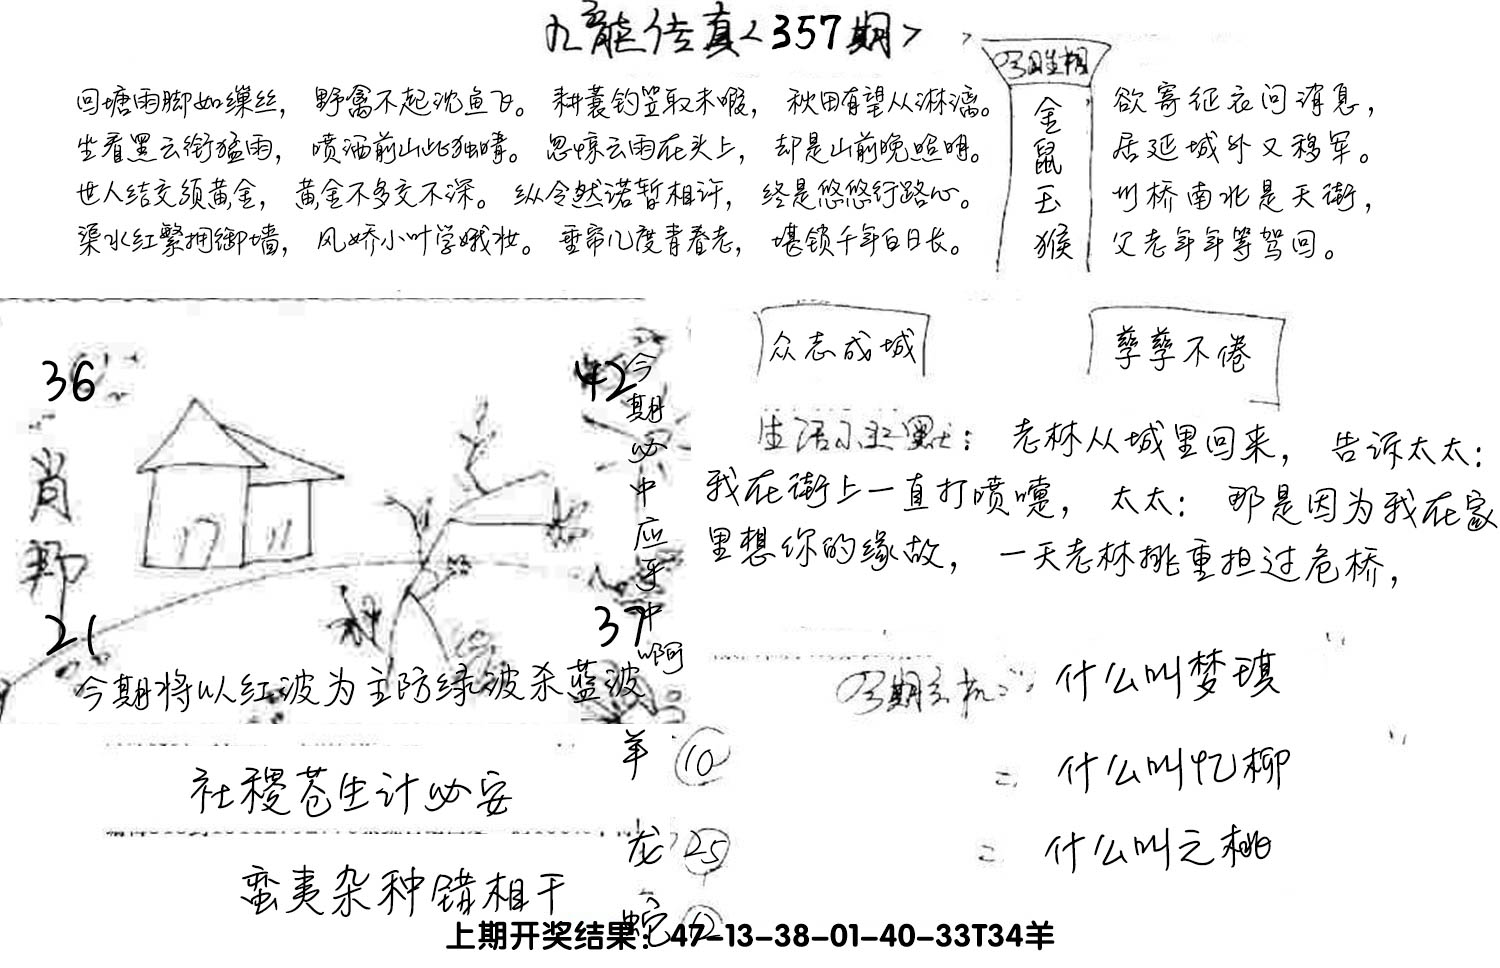 九龍传真<357期>
回塘雨脚如缫丝，野禽不起沈鱼飞。耕蓑钓笠取未暇，秋田有望从淋漓。
坐看黑云衔猛雨，喷洒前山此独晴。忽惊云雨在头上，却是山前晚照明。
世人结交须黄金，黄金不多交不深。纵令然诺暂相许，终是悠悠行路心。
渠水红繁拥御墙，风娇小叶学娥妆。垂帘几度青春老，堪锁千年白日长。
金鼠玉猴
欲寄征衣问消息，
居延城外又移军。
州桥南北是天街，
父老年年等驾回。
36
42
肖
21
37
今期必中应乎中啊
今期将以红波为主防绿波杀蓝波
众志成城
孳孳不倦
老林从城里回来，告诉太太：
我在街上一直打喷嚏，太太：那是因为我在家
里想你的缘故，一天老林挑重担过危桥，
什么叫梦琪
什么叫忆柳
什么叫之桃
社稷苍生计必安
蛮夷杂种错相干
羊 10
龙 25
蛇 12
上期开奖结果：47-13-38-01-40-33T34羊